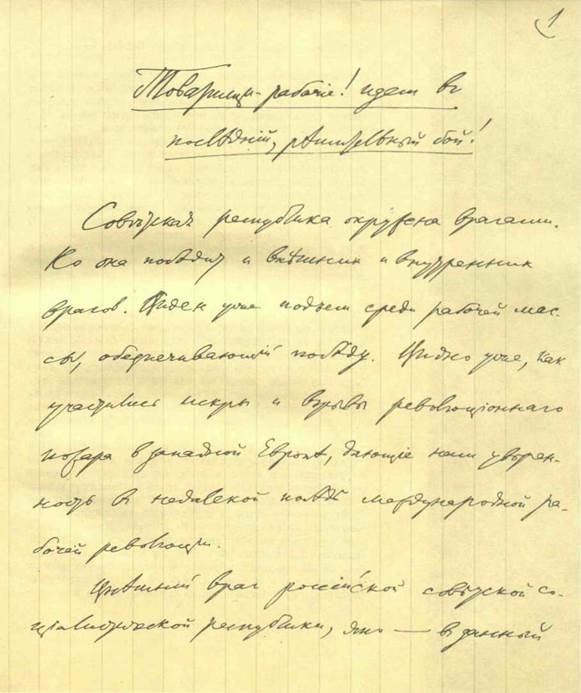 1
Товарищи-рабочие! идем в
последній, рѣшительный бой!
Совѣтская республика окружена врагами.
Но она побѣдит и внѣшних и внутренних
врагов. Виден уже подъем среди рабочей мас-
сы, обезпечивающій побѣду. Видно уже, как
участились искры и взрывы революціоннаго
пожара в западной Европѣ, дающіе нам увѣрен-
ность в недалекой побѣдѣ международной ра-
бочей революціи.
Внѣшній враг россійской совѣтской со-
ціалистической республики, это — в данный